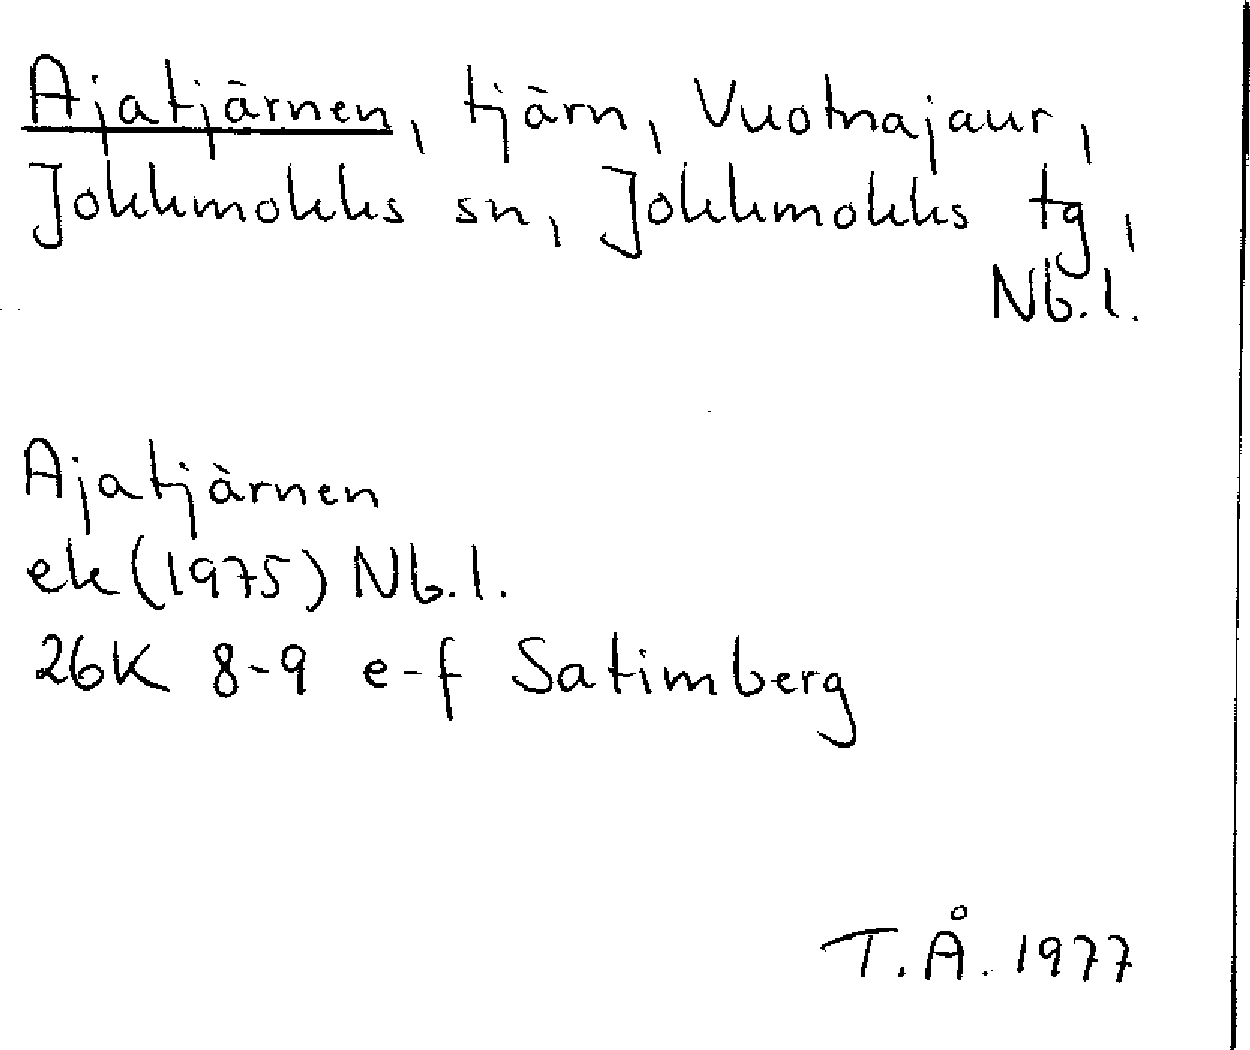 Ajatjärnen, tjärn, Vuotnajaur,
Jokkmokks sn, Jokkmokks tg,
Nb.l.
Ajatjärnen
ek (1975) Nb.l.
26K 8-9 e-f Satimberg
T.Å. 1977